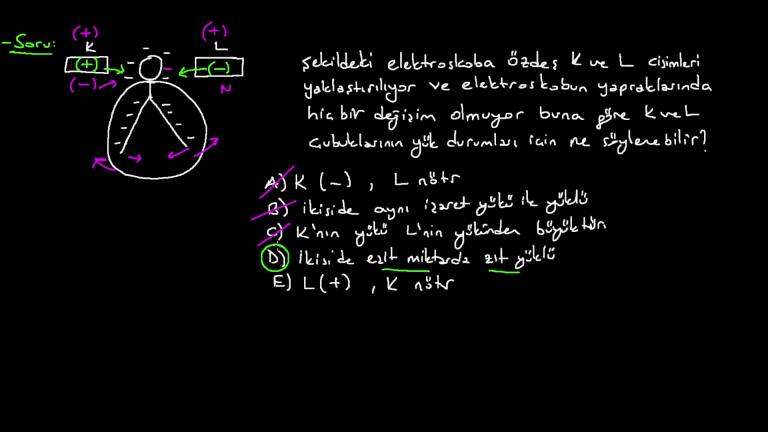 - Soru:
(+)
K
(+)
(-)
(+)
L
(-)
N
Şekildeki elektroskoba özdeş K ve L cisimleri
yaklaştırılıyor ve elektroskobun yapraklarında
hiç bir değişim olmuyor buna göre K ve L
çubuklarının yük durumları için ne söylenebilir?
A) K (-) , L nötr
B) ikiside aynı işaret yükü ik yüklü
C) K'nın yükü L'nin yükünden büyüktür
D) İkiside eşit miktarda zıt yüklü
E) L(+) , K nötr